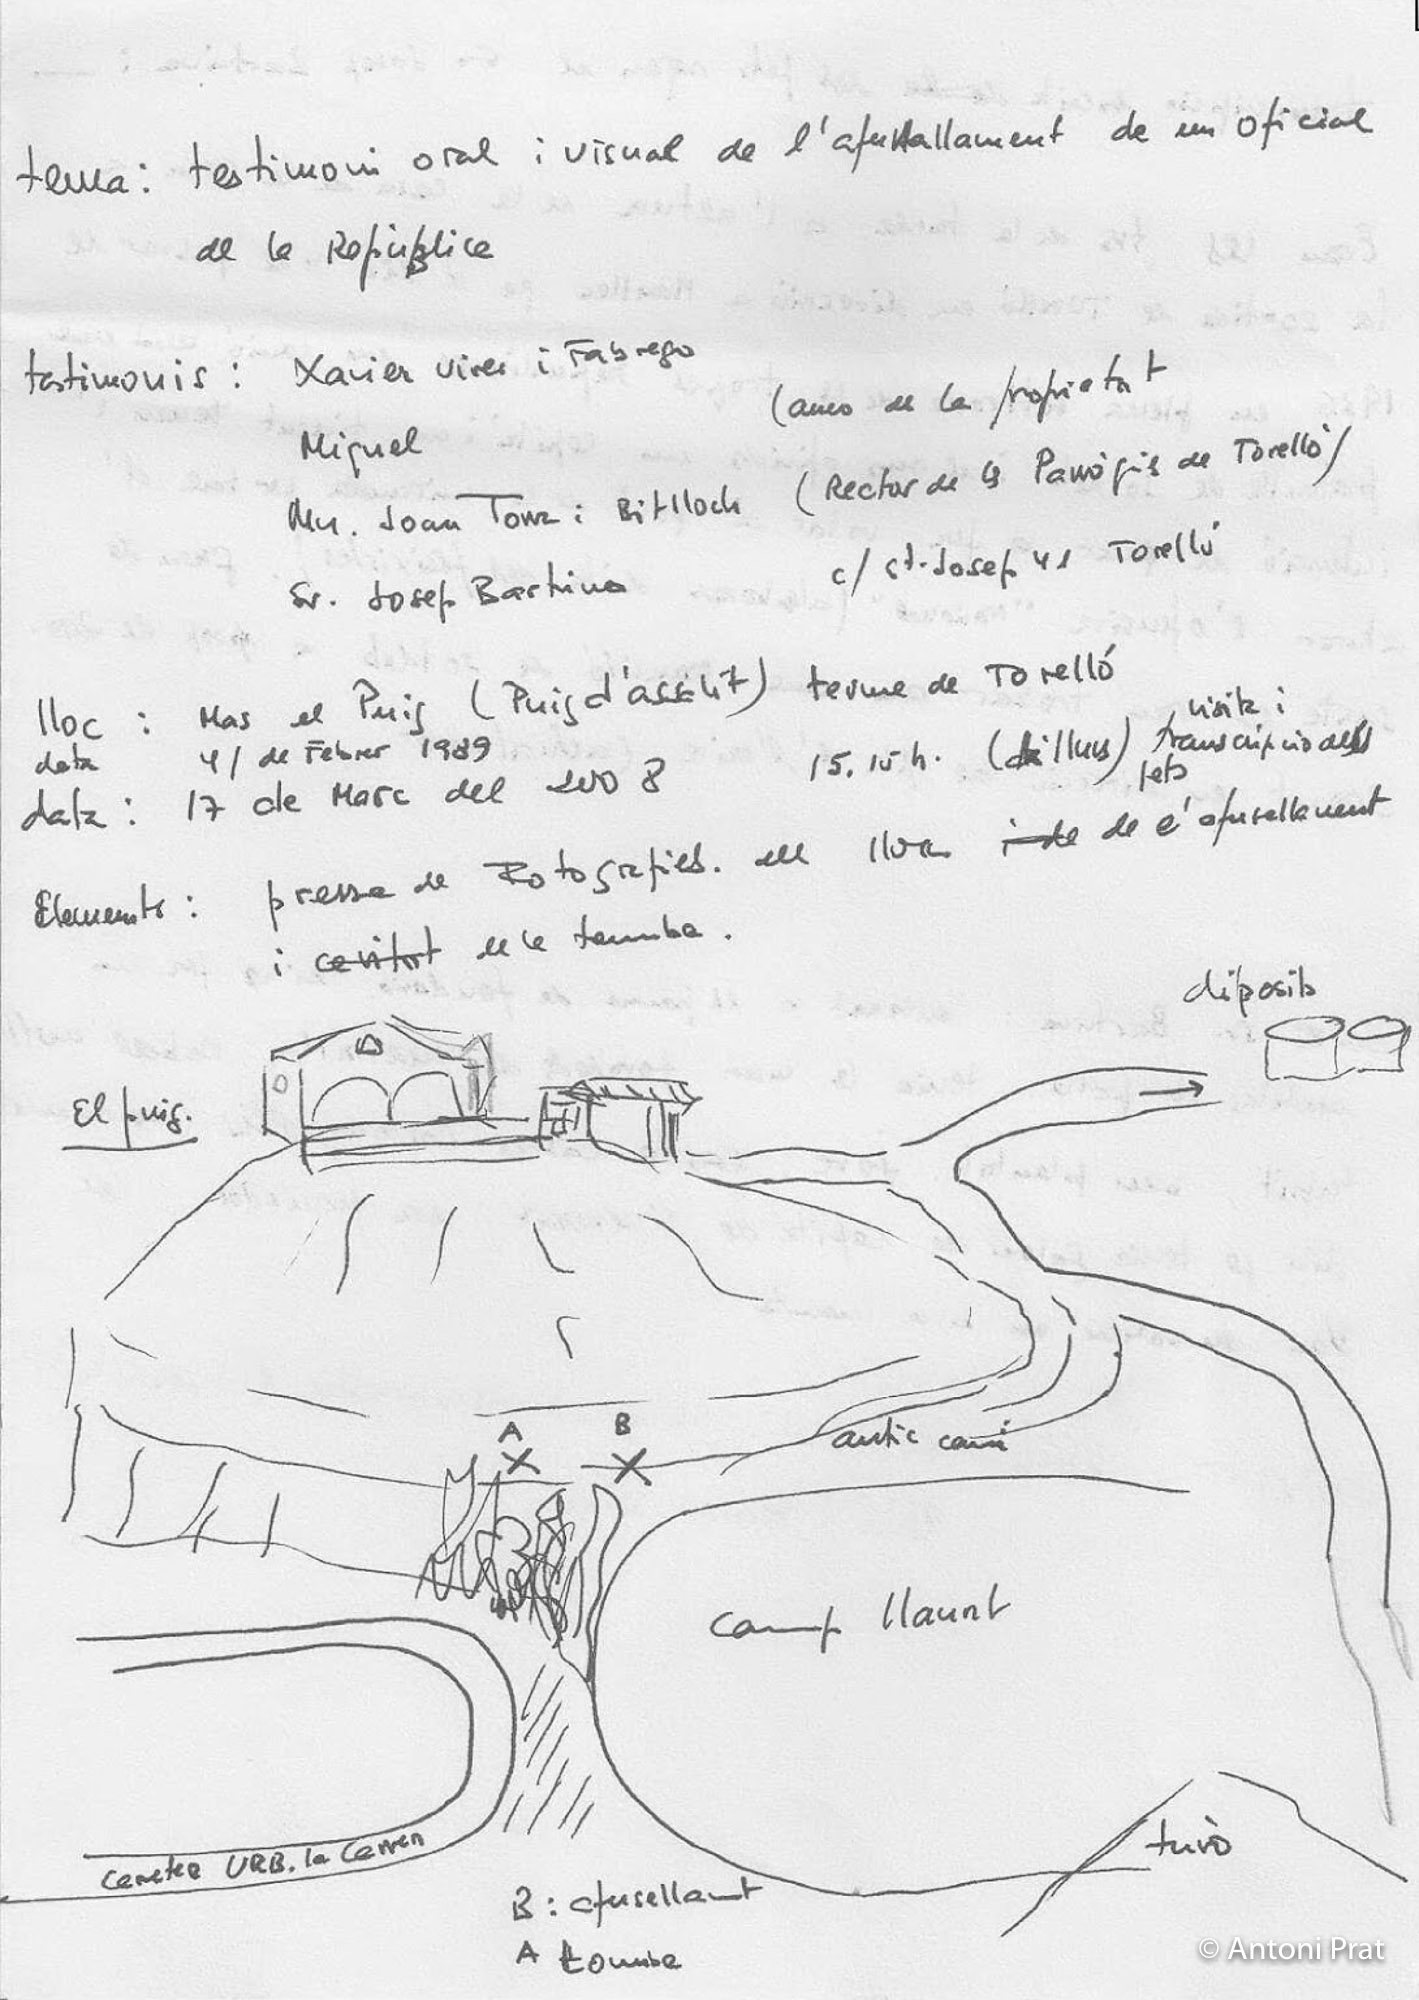 tema: testimoni oral i visual de l'afusellament de un oficial
de la República
testimonis: Xavier Vives i Fabrego
Miquel (amo de la propietat
Mn. Joan Torra i Bitlloch (Rector de la Parròquia de Torelló)
Sr. Josep Bartrina c/ St. Josep 41 Torelló
lloc: Mas el Puig (Puig d'assalit) terme de Torelló
data 4/ de Febrer 1939
data: 17 de Març del 2008 15.15 h. (dilluns) visita i transcripció dels fets
Elements: presa de Fotografies. del lloc de l'afusellament
i de la tomba.
dipòsits
El puig.
A B
antic camí
camp llaurat
turó
carretera URB. la
B: afusellament
A tomba
© Antoni Prat